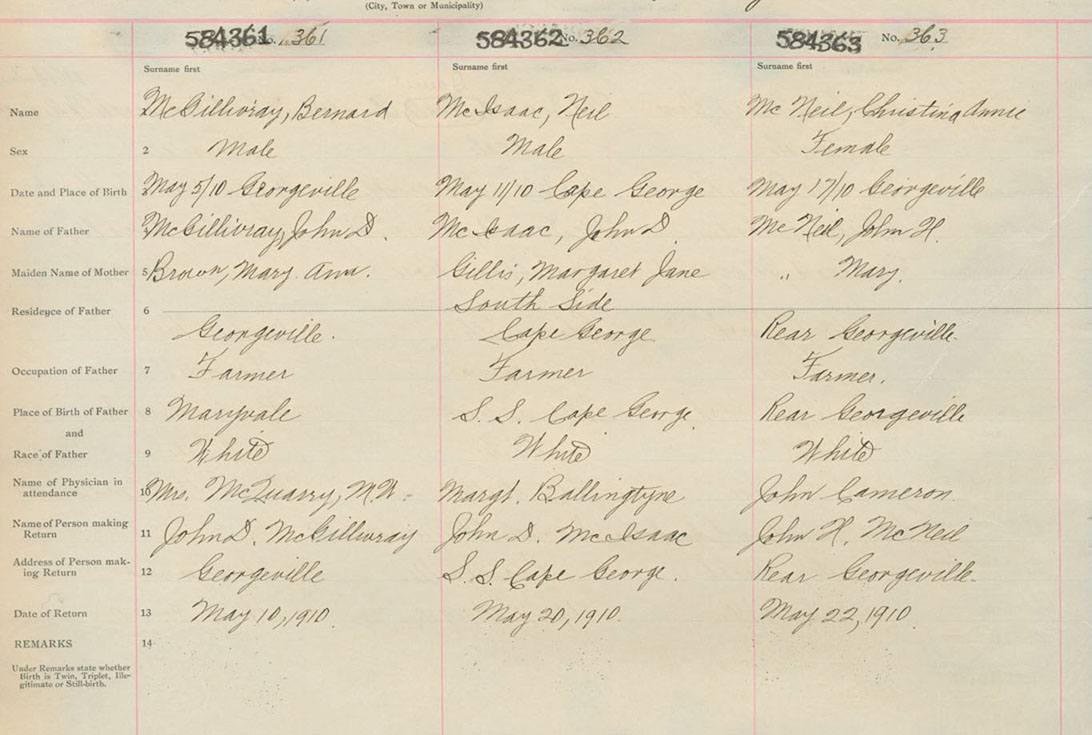 (City, Town or Municipality)
584361 No. 361 584362 No. 362 584363 No. 363
Surname first Surname first Surname first
Name McGillivray, Bernard McIsaac, Neil McNeil, Christina Annie
Sex 2 Male Male Female
Date and Place of Birth May 5/10 Georgeville May 11/10 Cape George May 17/10 Georgeville
Name of Father McGillivray, John D. McIsaac, John D. McNeil, John H.
Maiden Name of Mother 5 Brown, Mary Ann. Gillis, Margaret Jane " Mary.
South Side
Residence of Father 6
Georgeville. Cape George Rear Georgeville.
Occupation of Father 7 Farmer Farmer Farmer.
Place of Birth of Father 8 Maryvale S. S. Cape George. Rear Georgeville
and
Race of Father 9 White White White
Name of Physician in
attendance 10 Mrs. McQuarry, M.W. Margt. Ballingtyne John Cameron.
Name of Person making
Return 11 John D. McGillivray John D. McIsaac John H. McNeil
Address of Person mak-
ing Return 12 Georgeville S. S. Cape George. Rear Georgeville.
Date of Return 13 May 10, 1910. May 20, 1910. May 22, 1910.
REMARKS 14
Under Remarks state whether
Birth is Twin, Triplet, Ille-
gitimate or Still-birth.